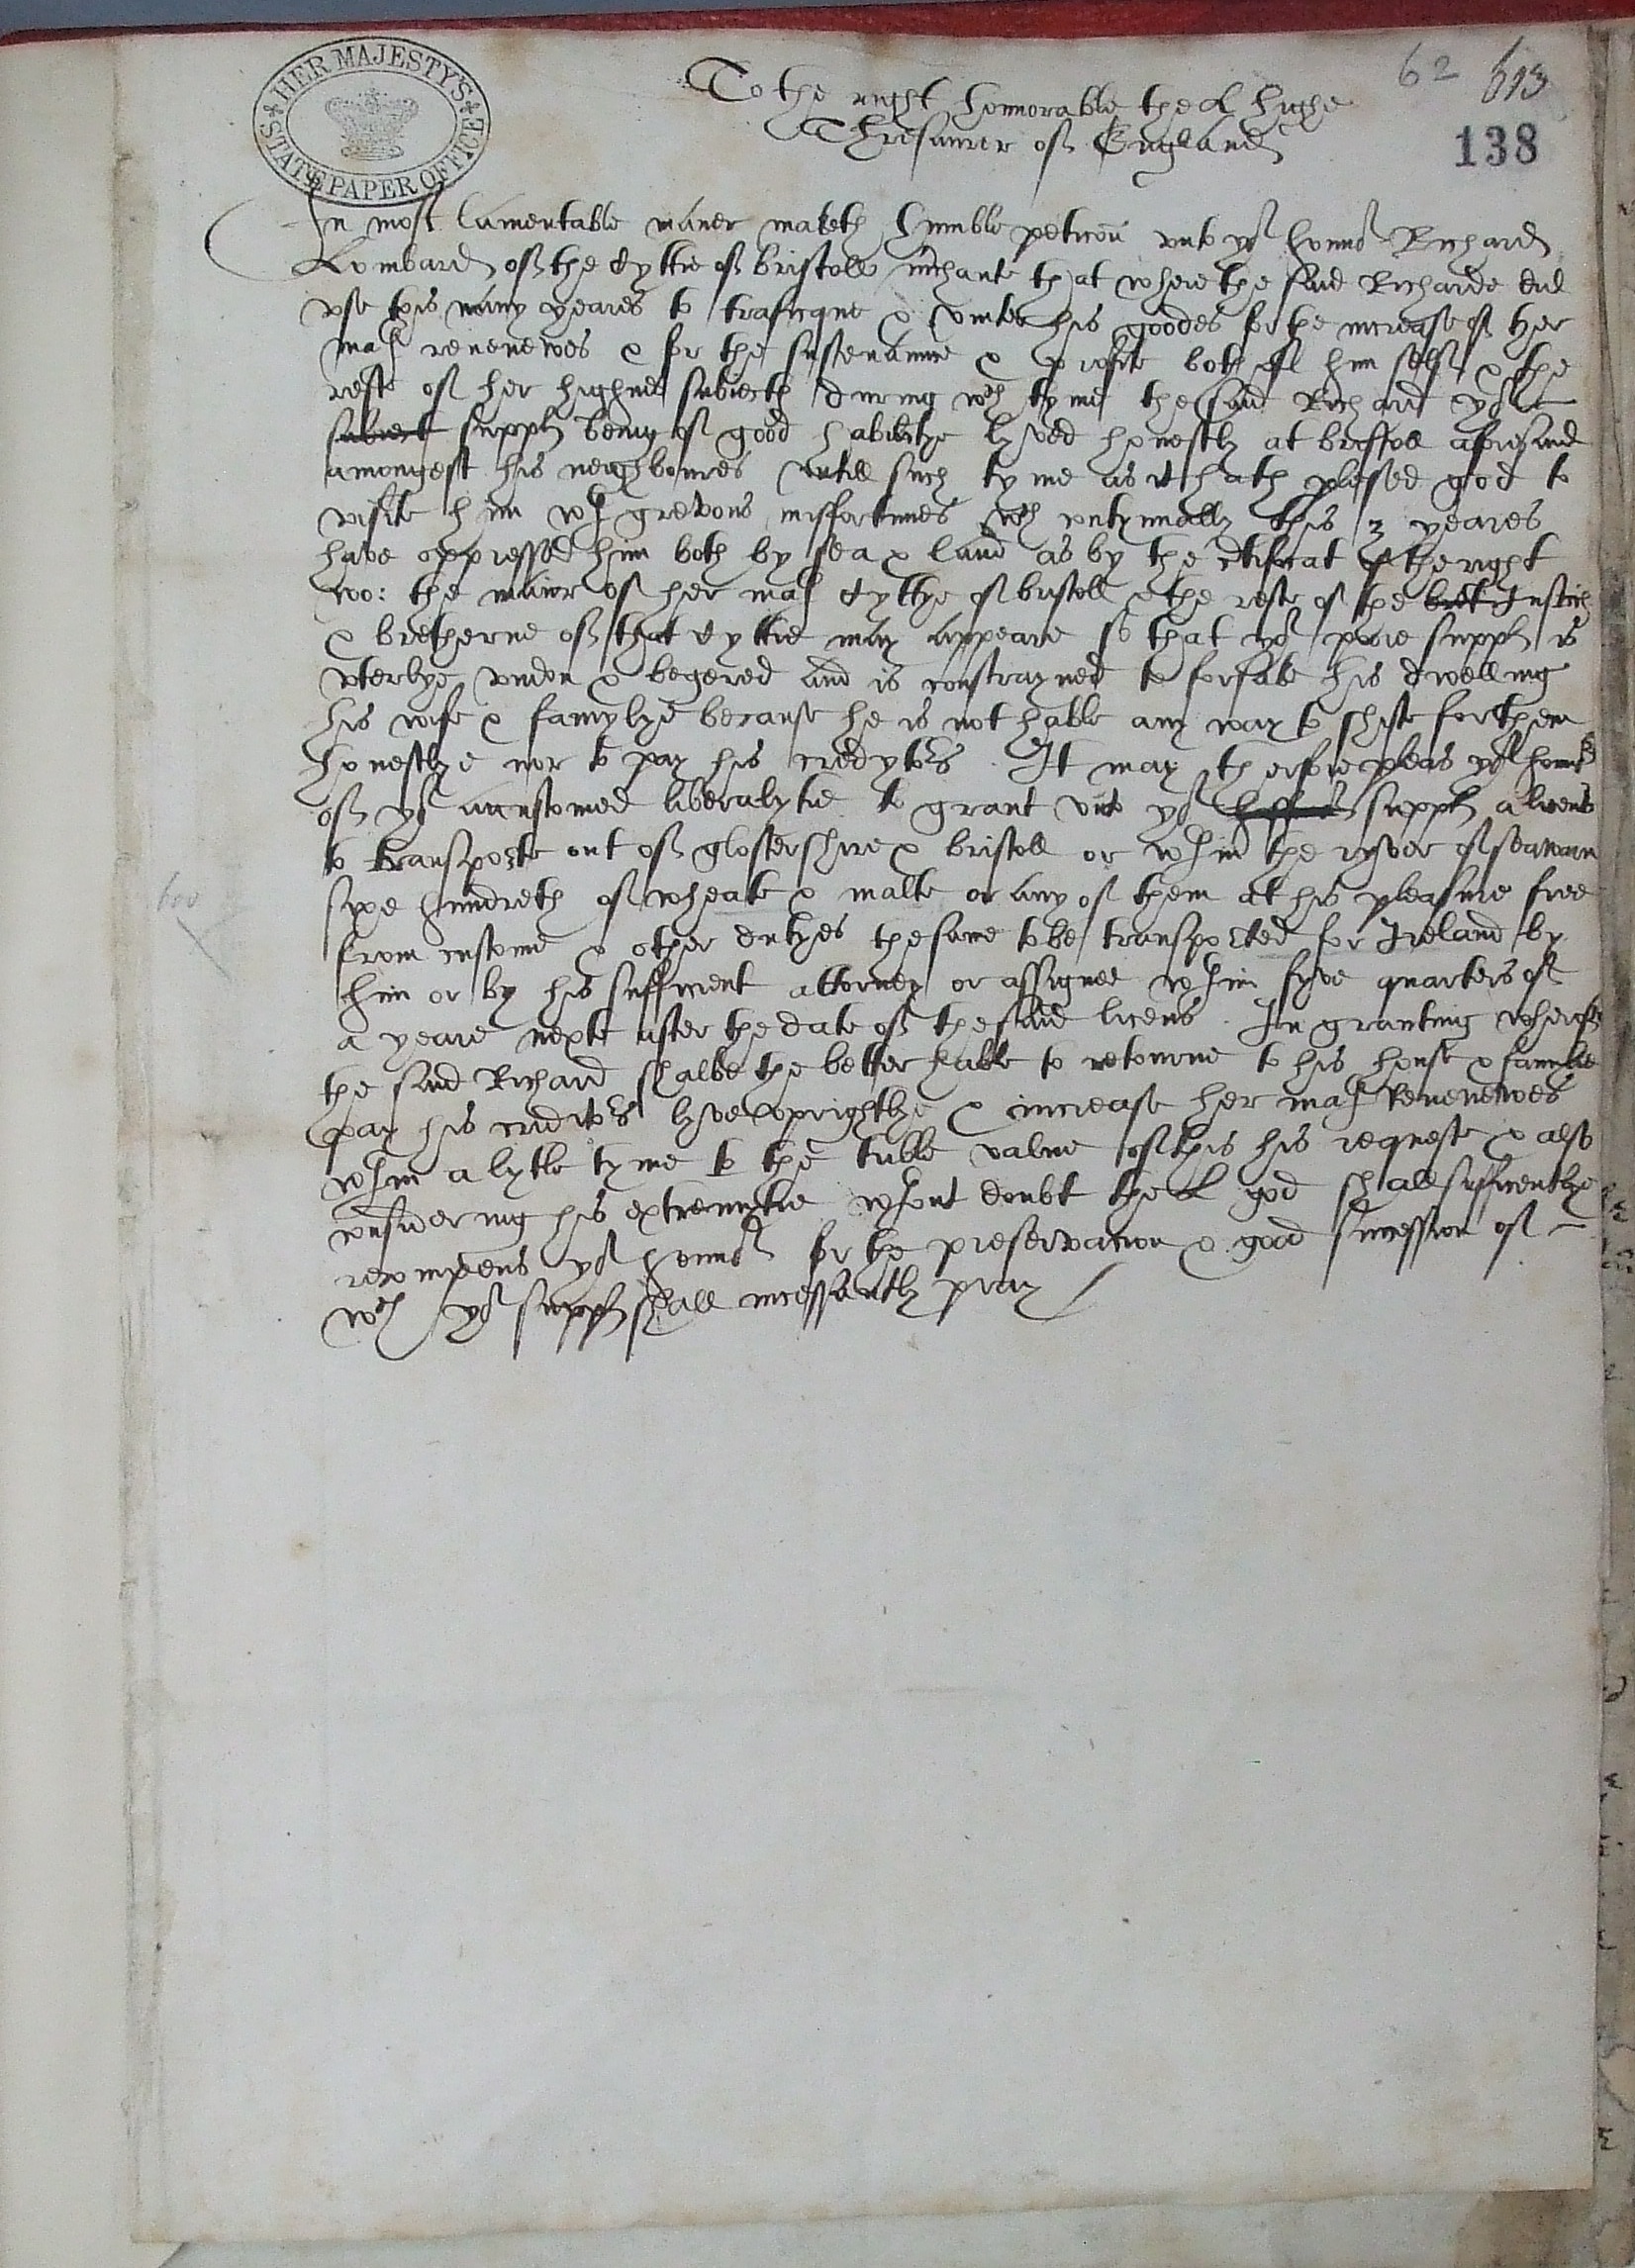 HER MAJESTY'S
STATE PAPER OFFICE
62 613
138
To the right honnorable the L highe
Thresaurer of England
In most lamentable maner maketh humble peticon unto yor honnor Richard
Lombard of the cyttie of bristoll mchante that where the said Richarde did
use this many yeares to traficque & venter his goodes for the increase of Her
mats revenewes & for the sustenaunce & profite both of him self & the
reste of her highnes subiects during wch tyme the said Richard yor
subiect suppl: being of good habilitye lyved honestly at bristoll aforesaid
amongest his neighboures untill such tyme as it hath plesed god to
visite him wt grevous misfortunes wch contynually this 3 yeares
have oppressed him both by sea & land as by the ctificat of the right
wo: the maior of her mats cyttye of bristoll & the reste of the bret Justics
& bretherne of that cyttie may appeare so that yor poore suppl: is
uterlye undon & begered and is constrayned to forsake his dwelling
his wife & famylye because he is not hable any way to shifte for them
honestlye nor to pay his credytors. It may therfore pleas yor honor
of yor accustomed liberalytie to grant unto yor suppl: a licens
to transporte out of glostershire & bristoll or wtin the ryver of seavern
sixe hundreth of wheate & malte or any of them at his pleasure free
600
from custome & other dutyes the same to be transported for Ireland by
him or by his sufficient attorney or assignee wtin fyve quarters of
a yeare nexte after the date of the said licens. In granting wherof
the said Richard shalbe the better hable to retourne to his house & familie
pay his creditors lyve uprightlye & increase her mats Revenewes
wtin a lytle tyme to the tuble value of this his requeste & also
considering his extremytie wtout doubt the L god shall sufficientlye
recompens yor honnor for the preservacion & good succession of
wch yor suppl: shall incessantly pray